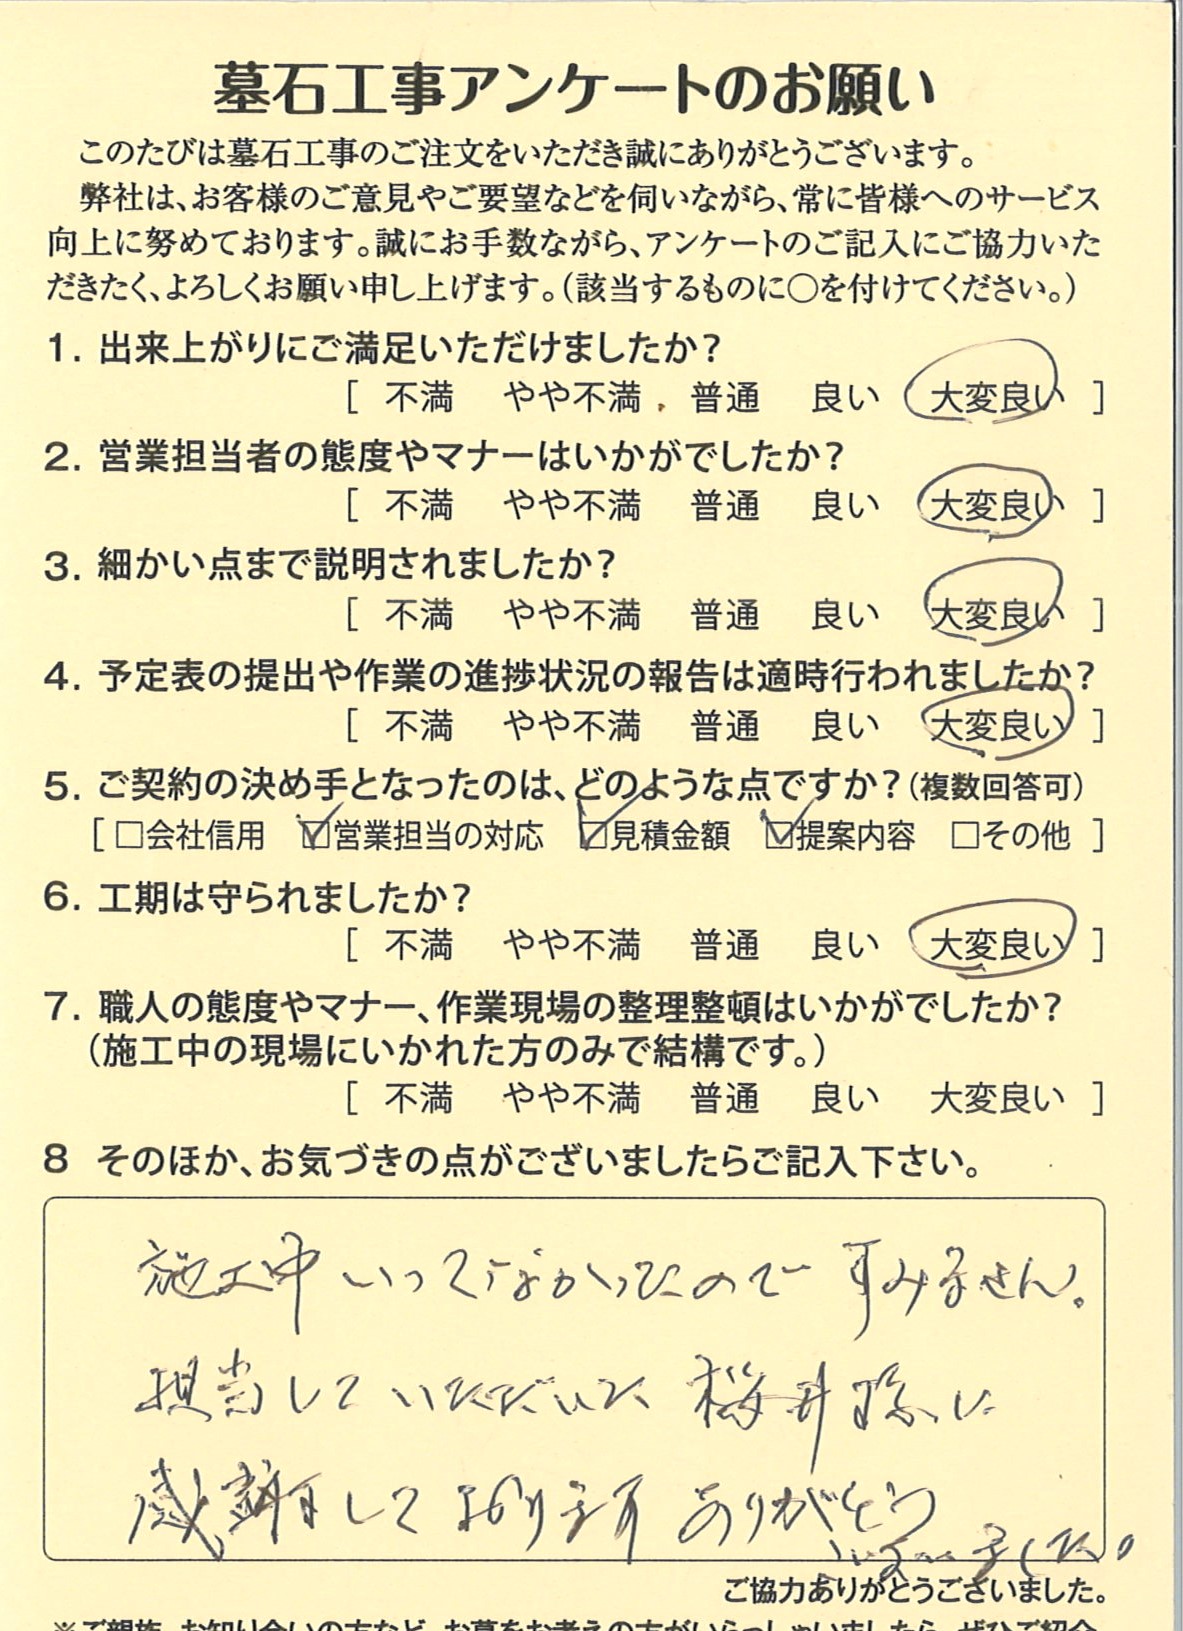 墓石工事アンケートのお願い
このたびは墓石工事のご注文をいただき誠にありがとうございます。
弊社は、お客様のご意見やご要望などを伺いながら、常に皆様へのサービス
向上に努めております。誠にお手数ながら、アンケートのご記入にご協力いた
だきたく、よろしくお願い申し上げます。(該当するものに○を付けてください。)
1. 出来上がりにご満足いただけましたか?
[ 不満 やや不満 普通 良い 大変良い ]
2. 営業担当者の態度やマナーはいかがでしたか?
[ 不満 やや不満 普通 良い 大変良い ]
3. 細かい点まで説明されましたか?
[ 不満 やや不満 普通 良い 大変良い ]
4. 予定表の提出や作業の進捗状況の報告は適時行われましたか?
[ 不満 やや不満 普通 良い 大変良い ]
5. ご契約の決め手となったのは、どのような点ですか?(複数回答可)
[ □会社信用 ☑営業担当の対応 ☑見積金額 ☑提案内容 □その他 ]
6. 工期は守られましたか?
[ 不満 やや不満 普通 良い 大変良い ]
7. 職人の態度やマナー、作業現場の整理整頓はいかがでしたか?
(施工中の現場にいかれた方のみで結構です。)
[ 不満 やや不満 普通 良い 大変良い ]
8 そのほか、お気づきの点がございましたらご記入下さい。
施工中いってなかったのですみません。
担当していただいた桜井様に
感謝しております ありがとう
ございました。
ご協力ありがとうございました。
※ご親族、お知り合いの方など、お墓をお考えの方がいらっしゃいましたら、ぜひご紹介